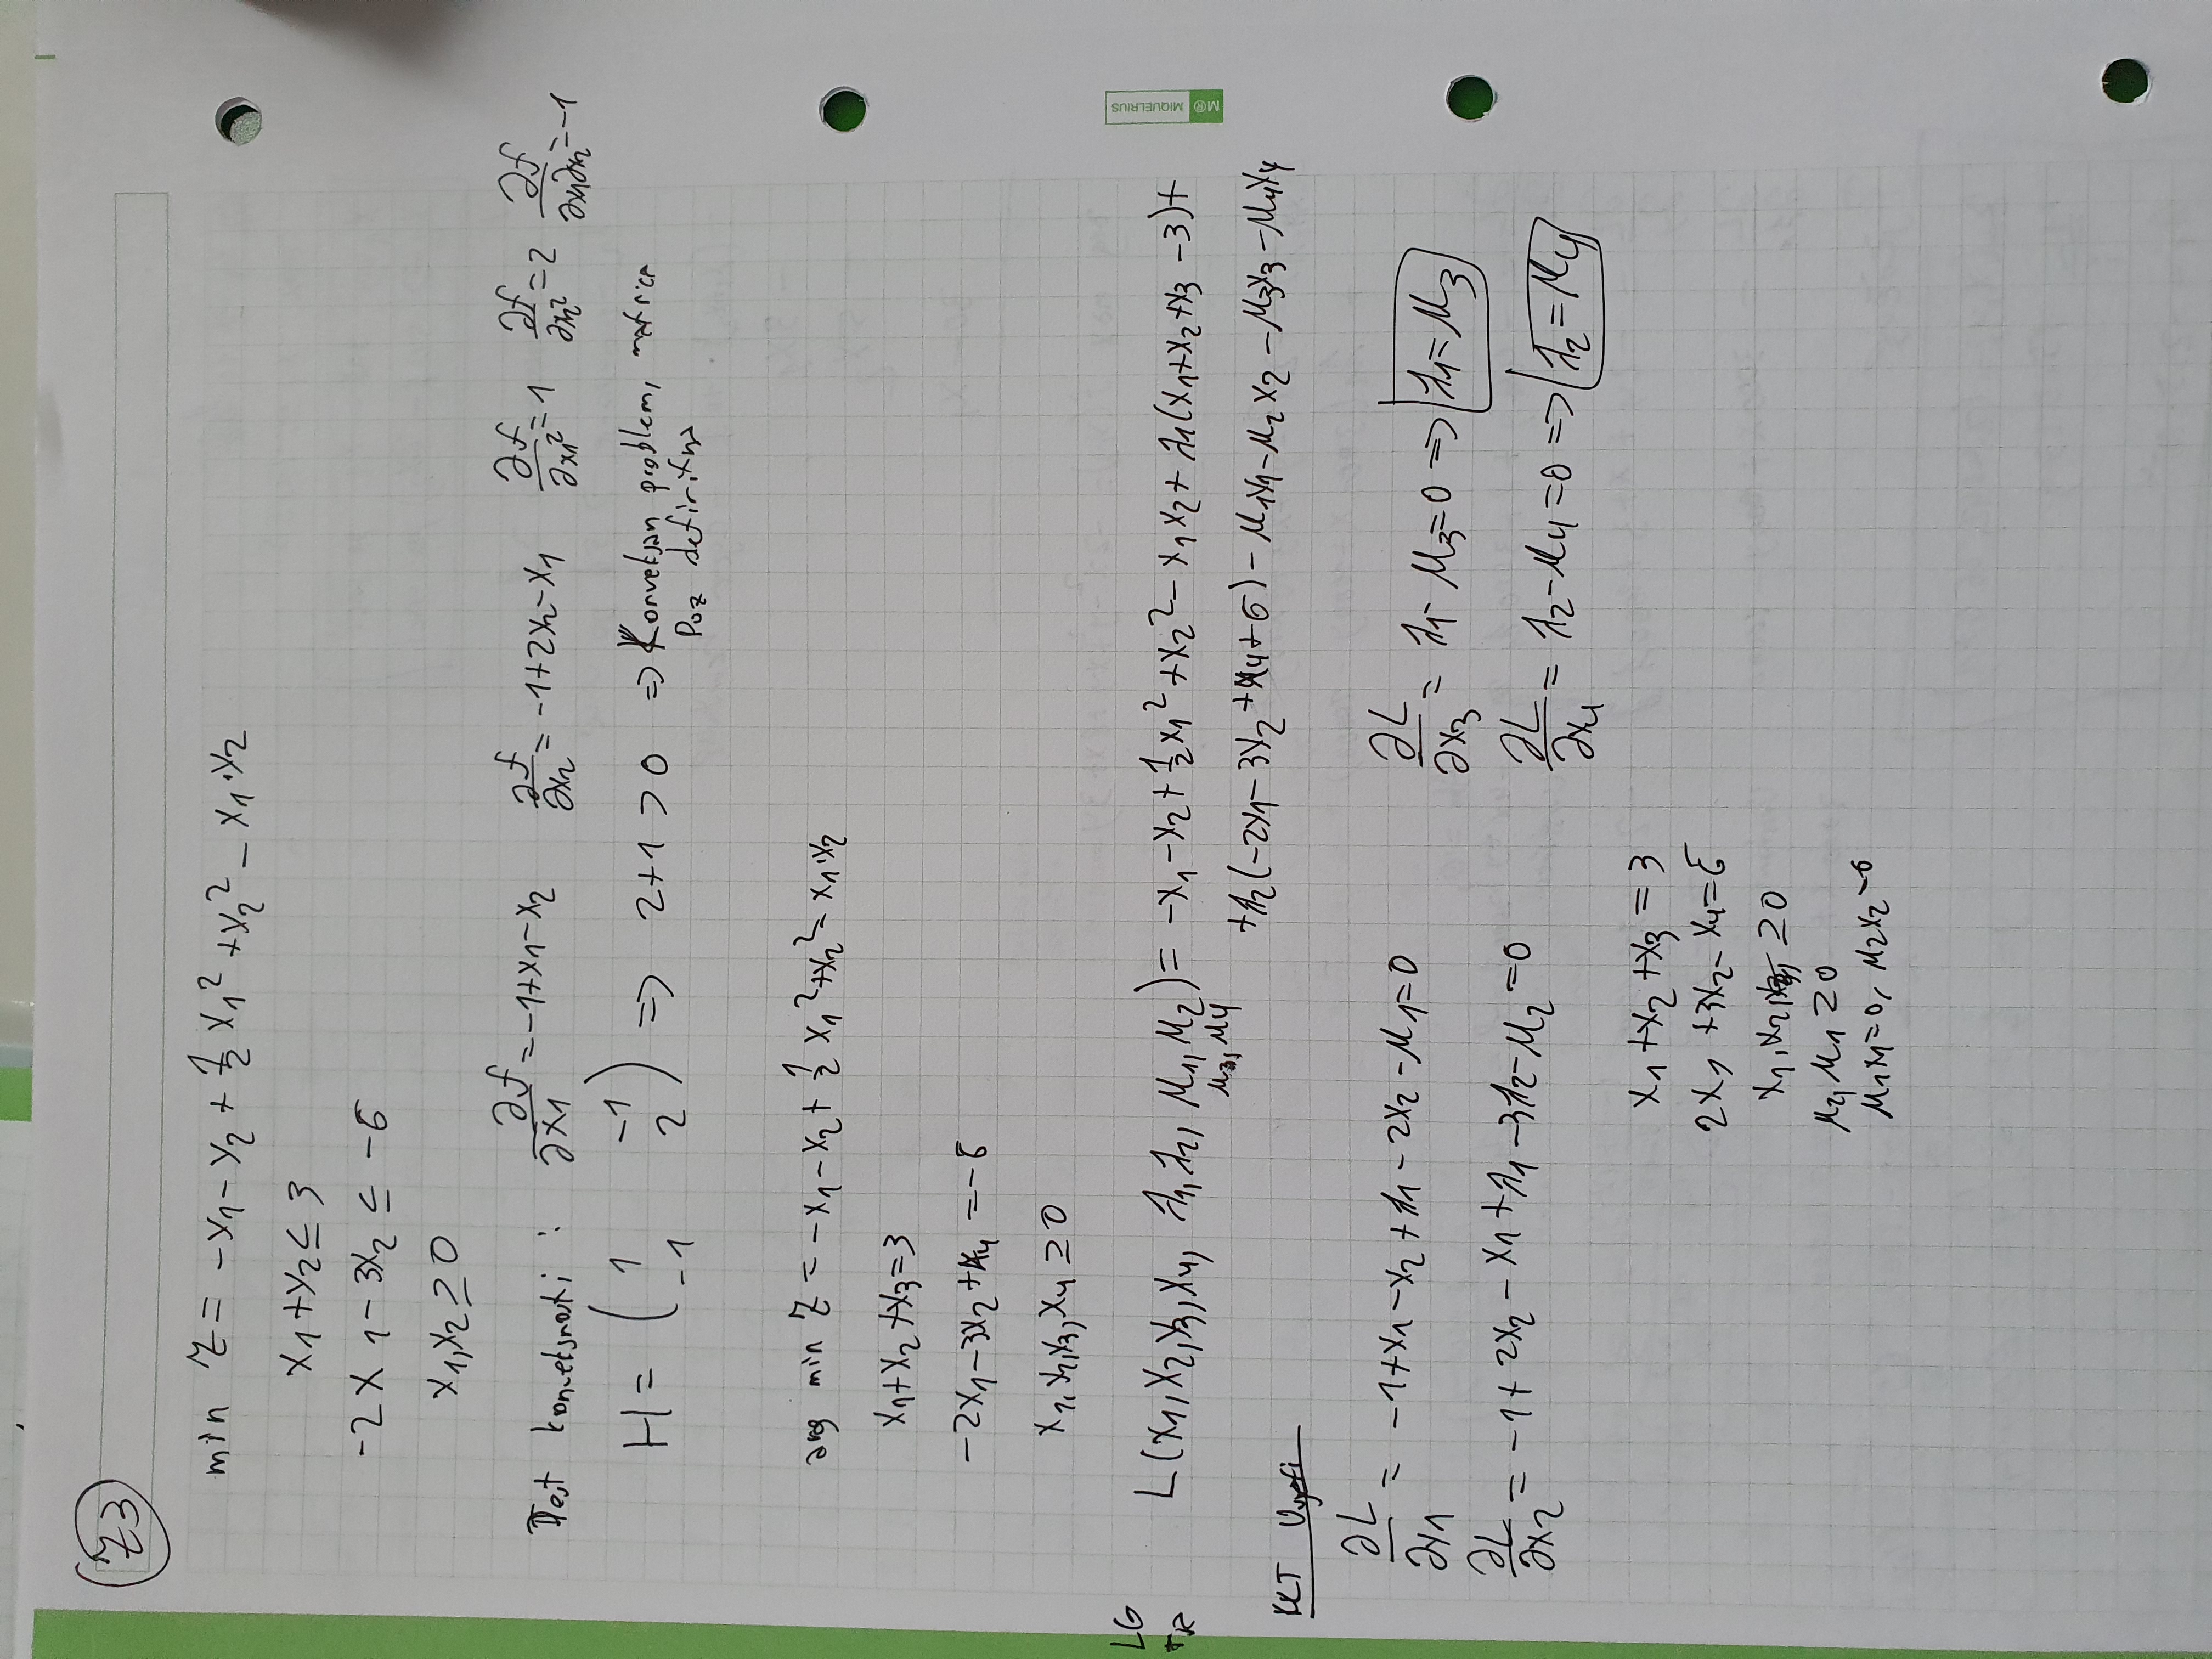 Z3
min Z = -x₁ - x₂ + 1/2 x₁² + x₂² - x₁·x₂
x₁ + x₂ ≤ 3
-2x₁ - 3x₂ ≤ -6
x₁, x₂ ≥ 0
Test konveksnosti : ∂f/∂x₁ = -1 + x₁ - x₂ ∂f/∂x₂ = -1 + 2x₂ - x₁ ∂f/∂x₁² = 1 ∂f/∂x₂² = 2 ∂f/∂x₁∂x₂ = -1
H = ( 1 -1
-1 2 ) => 2+1 > 0 => Konveksan problem, matrica
Poz definitna
arg min Z = -x₁ - x₂ + 1/2 x₁² + x₂² - x₁·x₂
x₁ + x₂ + x₃ = 3
-2x₁ - 3x₂ + x₄ = -6
x₁, x₂, x₃, x₄ ≥ 0
LG
TR
L(x₁, x₂, x₃, x₄, λ₁, λ₂, μ₁, μ₂) = -x₁ - x₂ + 1/2 x₁² + x₂² - x₁x₂ + λ₁(x₁ + x₂ + x₃ - 3) +
μ₃, μ₄
+ λ₂(-2x₁ - 3x₂ + x₄ + 6) - μ₁x₁ - μ₂x₂ - μ₃x₃ - μ₄x₄
KKT Uvjeti
∂L/∂x₁ = -1 + x₁ - x₂ + λ₁ - 2x₂ - μ₁ = 0
∂L/∂x₂ = -1 + 2x₂ - x₁ + λ₁ - 3λ₂ - μ₂ = 0
∂L/∂x₃ = λ₁ - μ₃ = 0 => λ₁ = μ₃
∂L/∂x₄ = λ₂ - μ₄ = 0 => λ₂ = μ₄
x₁ + x₂ + x₃ = 3
2x₁ + 3x₂ - x₄ = 6
x₁, x₂, ≥ 0
μ₂, μ₁ ≥ 0
μ₁x₁ = 0, μ₂x₂ = 0
M® MIQUELRIUS